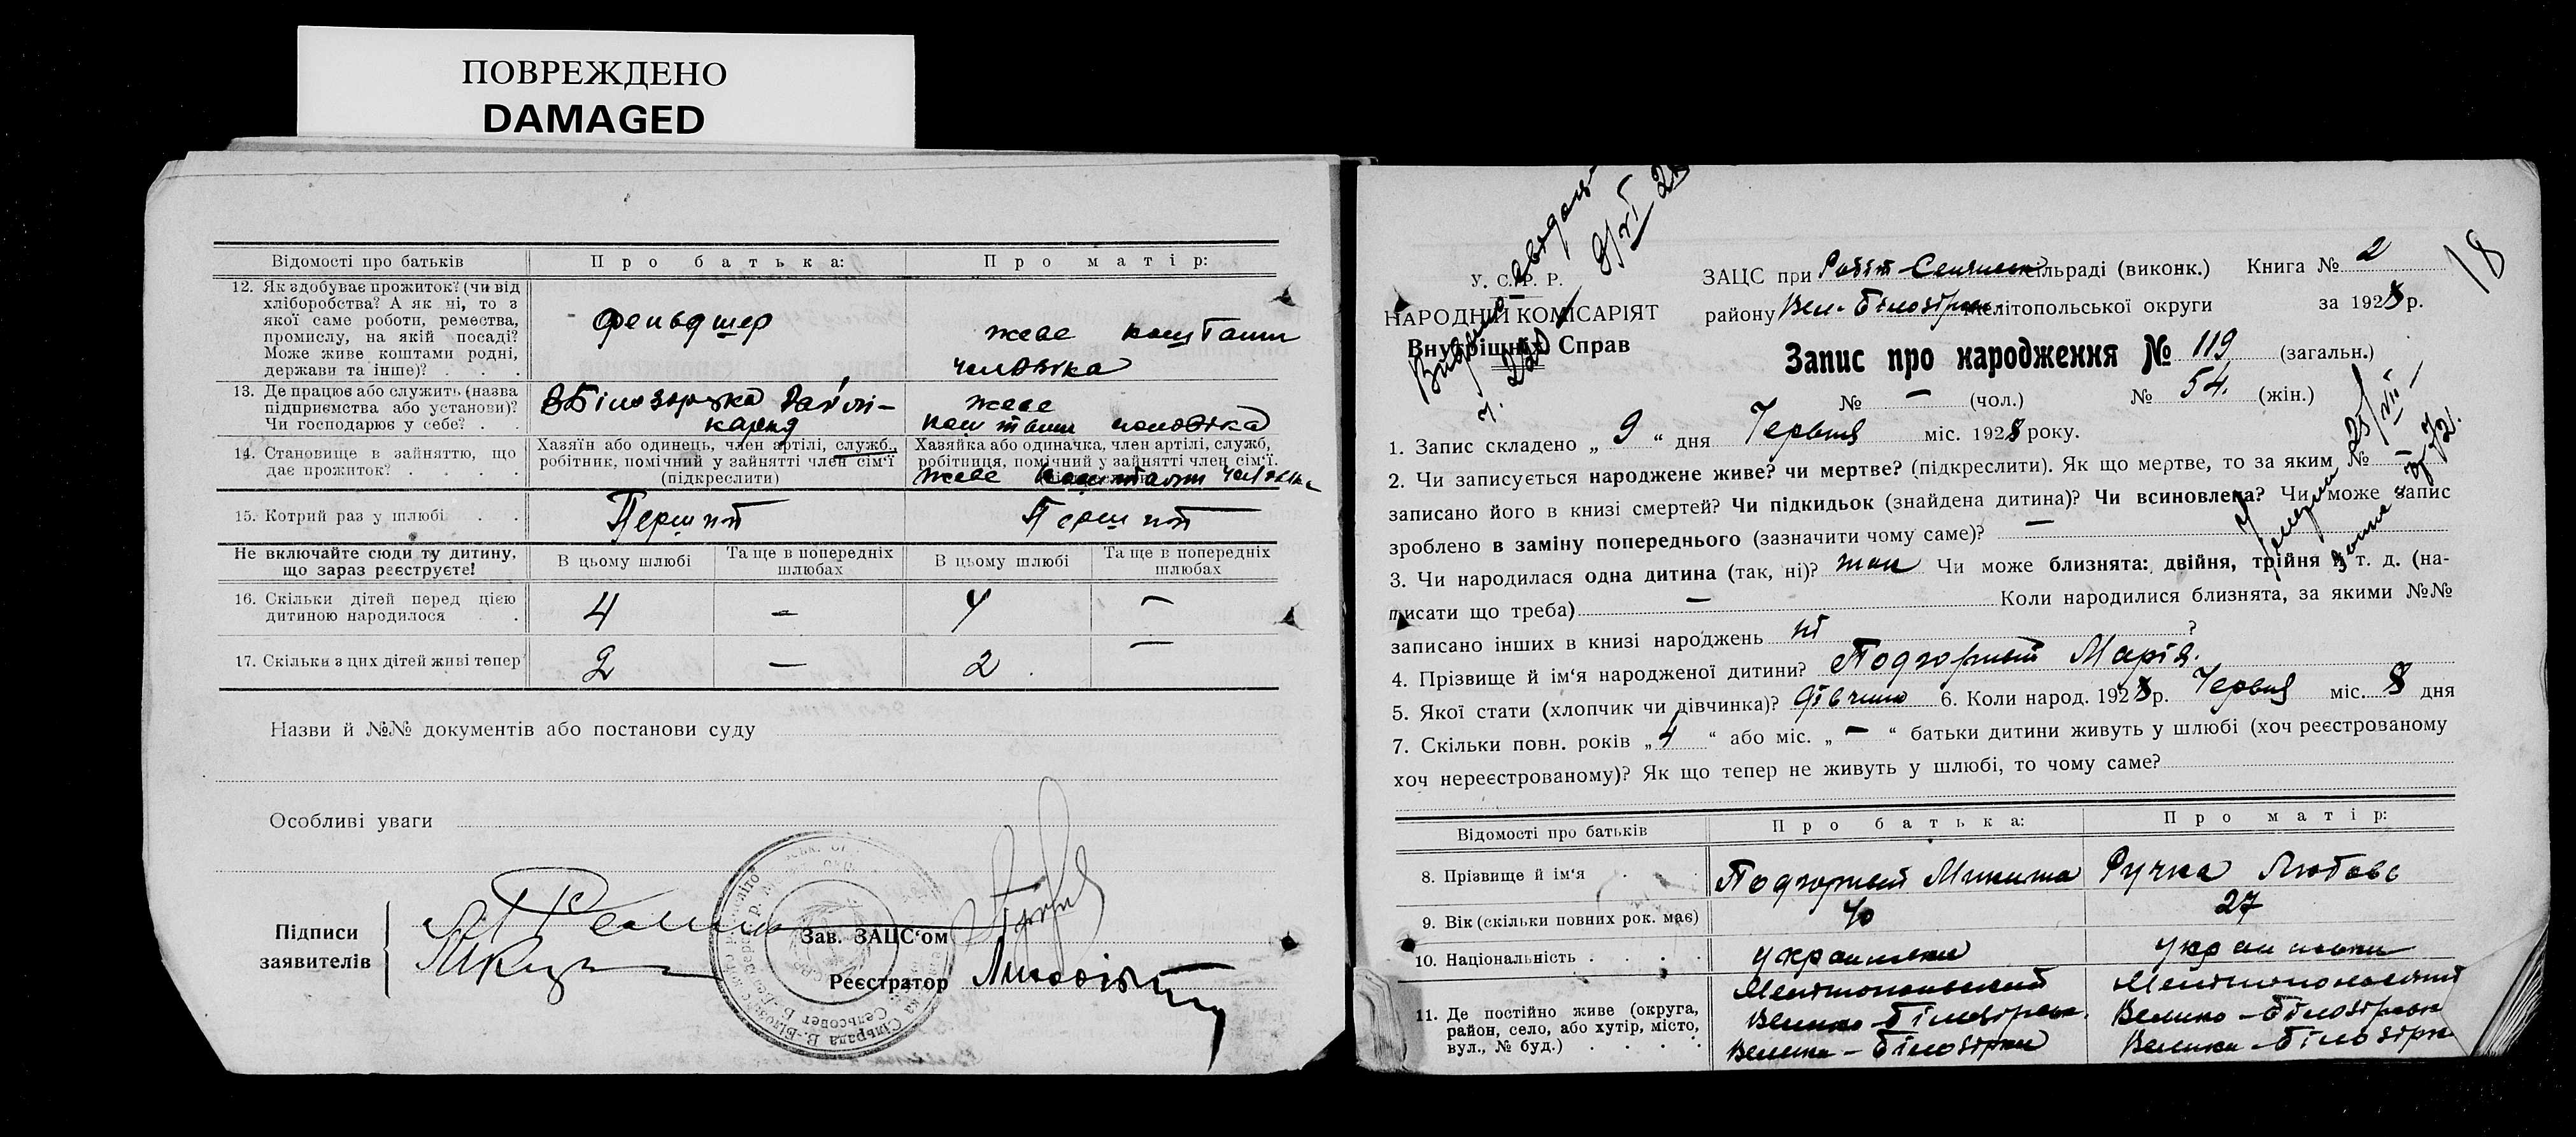 ПОВРЕЖДЕНО
DAMAGED
Відомості про батьків
Про батька:
Про матір:
12. Як здобуває прожиток? (чи від
хліборобства? А як ні, то з
якої саме роботи, ремества,
промислу, на якій посаді?
Може живе коштами родні,
держави та інше)? . . .
фельдшер
живе коштами
чоловіка
13. Де працює або служить (назва
підприємства або установи)?
Чи господарює у себе? . .
живе
коштами чоловіка
14. Становище в зайняттю, що
дає прожиток? . . . .
Хазяїн або одинець, член артілі, служб.,
робітник, помічний у зайнятті член сім'ї
(підкреслити)
Хазяйка або одиначка, член артілі, служб,
робітниця, помічний у зайнятті член сім'ї.
живе коштами чоловіка
15. Котрий раз у шлюбі . .
Перший
Перший
Не включайте сюди ту дитину,
що зараз реєструєте!
В цьому шлюбі
Та ще в попередніх
шлюбах
В цьому шлюбі
Та ще в попередніх
шлюбах
16. Скільки дітей перед цією
дитиною народилося . .
4 — 4 —
17. Скільки з цих дітей живі тепер
2 — 2 —
Назви й №№ документів або постанови суду
Особливі уваги
Підписи
заявителів
Зав. ЗАЦС'ом
Реєстратор
18
У. С. Р. Р.
НАРОДНІЙ КОМІСАРІЯТ
Внутрішніх Справ
ЗАЦС при сільраді (виконк.) Книга № 2
району Вел-Білозірськ Мелітопольської округи за 1928 р.
Запис про народження № 119 (загальн.)
№ — (чол.) № 54. (жін.)
1. Запис складено „ 9 “ дня Червня міс. 1928 року.
2. Чи записується народжене живе? чи мертве? (підкреслити). Як що мертве, то за яким № —
записано його в книзі смертей? Чи підкидьок (знайдена дитина)? Чи всиновлена? Чи може запис
зроблено в заміну попереднього (зазначити чому саме)? —
3. Чи народилася одна дитина (так, ні)? так Чи може близнята: двійня, трійня й т. д. (на-
писати що треба) — Коли народилися близнята, за якими №№
записано інших в книзі народжень ні ?
4. Прізвище й ім'я народженої дитини? Подгорный Марія.
5. Якої стати (хлопчик чи дівчинка)? дівчина 6. Коли народ. 1928 р. Червня міс. 8 дня
7. Скільки повн. років „ “ або міс. „ — “ батьки дитини живуть у шлюбі (хоч реєстрованому
хоч нереєстрованому)? Як що тепер не живуть у шлюбі, то чому саме?
Відомості про батьків
Про батька:
Про матір:
8. Прізвище й ім'я . .
Подгорный Микита
Ручка Любовь
9. Вік (скільки повних рок. має)
40
27
10. Національність . . . .
11. Де постійно живе (округа,
район, село, або хутір, місто,
вул., № буд.) . . . .
Мелітопольский
Велико-Білозірськ.
Велика-Білозірка
Велико-Білозірськ
Велика-Білозірк